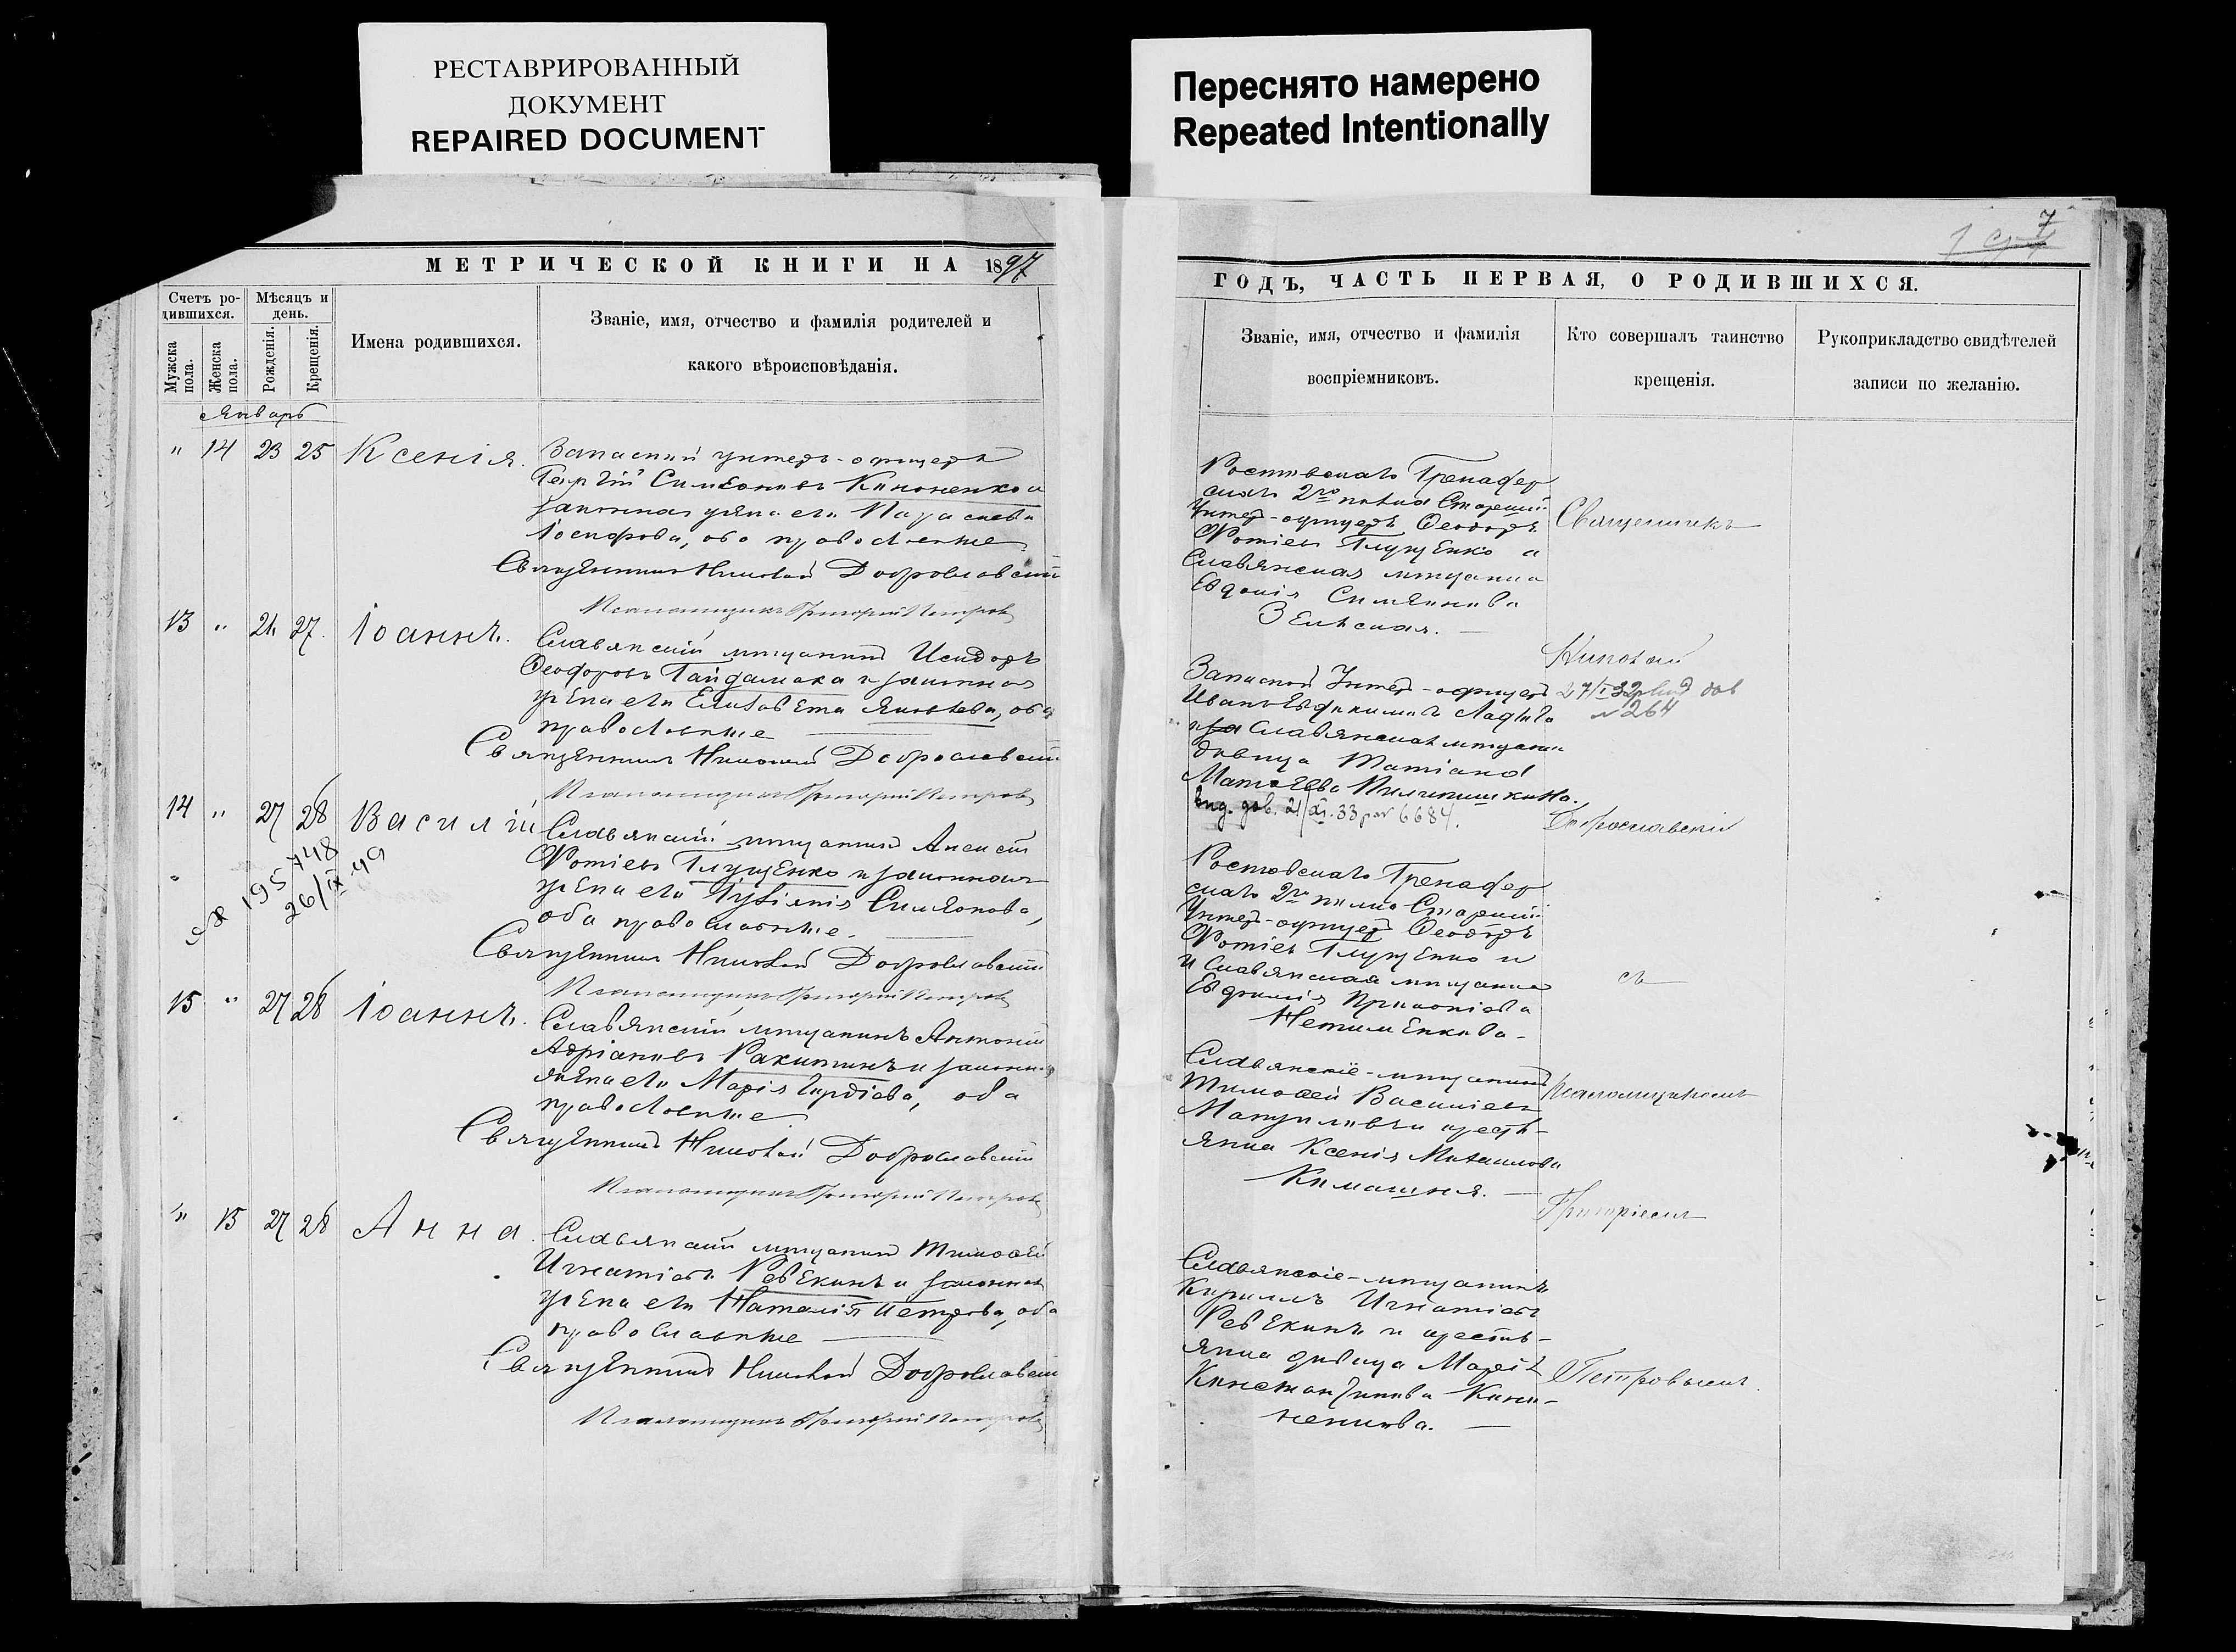 РЕСТАВРИРОВАННЫЙ
ДОКУМЕНТ
REPAIRED DOCUMENT
Переснято намерено
Repeated Intentionally
7
МЕТРИЧЕСКОЙ КНИГИ НА 1897
Счетъ ро-
дившихся.
Мужска
пола.
Женска
пола.
Мѣсяцъ и
день.
Рожденія.
Крещенія.
Имена родившихся.
Званіе, имя, отчество и фамилія родителей и
какого вѣроисповѣданія.
Январь
" 14 23 25 Ксенія.
Запасный унтеръ-офицеръ
Георгій Симеоновъ Кононенко и
законная жена его Параскева
Іосифова, оба православные
Священникъ Николай Доброславскій
Псаломщикъ Григорій Петровъ
13 " 21 27. Іоаннъ.
Славянскій мѣщанинъ Исидоръ
Ѳеодоровъ Гайдамака и законная
жена его Елисавета Яковлева, оба
православные
Священникъ Николай Доброславскій
Псаломщикъ Григорій Петровъ
14 " 27 28 Василій
195748
26/IX 49
Славянскій мѣщанинъ
Фотіевъ Глущенко и законная
жена его Симеонова,
оба православные.
Священникъ Николай Доброславскій
Псаломщикъ Григорій Петровъ
15 " 27 28 Іоаннъ.
Славянскій мѣщанинъ Антоній
Адріановъ Ракитинъ и законная
жена его Марія Гордіева, оба
православные
Священникъ Николай Доброславскій
Псаломщикъ Григорій Петровъ
" 15 27 28 Анна.
Славянскій мѣщанинъ Тимофей
Игнатіевъ Ревекинъ и законная
жена его Наталія Петрова, оба
православные
Священникъ Николай Доброславскій
Псаломщикъ Григорій Петровъ
ГОДЪ, ЧАСТЬ ПЕРВАЯ, О РОДИВШИХСЯ.
Званіе, имя, отчество и фамилія
воспріемниковъ.
Кто совершалъ таинство
крещенія.
Рукоприкладство свидѣтелей
записи по желанію.
Ростовскаго Гренадер
скаго 2го полка Старшій
Унтер-офицеръ Ѳеодоръ
Фотіевъ Глущенко и
Славянская мѣщанка
Евдокія Симеонова
Зеленская.
Запасной Унтер-офицеръ
Иванъ
и Славянская мѣщанка
дѣвица Татіана
Матѳеева
выд. дов. 21/XI.33 р № 6684.
Ростовскаго Гренадер
скаго 2го полка Старшій
Унтер-офицеръ Ѳеодоръ
Фотіевъ Глущенко и
и Славянская мѣщанка
Прокопіева
Славянскіе - мѣщанинъ
Тимофей Василіевъ
и кресть-
янка Ксенія Михаилова
Славянскіе - мѣщанинъ
Кириллъ Игнатіевъ
Ревекинъ и кресть-
янка дѣвица Марія
Константинова Коно-
ненкова.
Священникъ
Николай
27/I 32 выд дов
№ 264
Доброславскій
съ
Псаломщикомъ
Григоріемъ
Петровымъ.